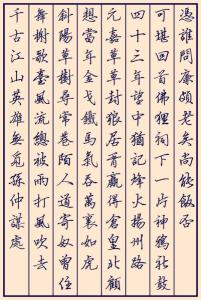 千古江山英雄無覓孫仲謀處
舞榭歌臺風流總被雨打風吹去
斜陽草樹尋常巷陌人道寄奴曾住
想當年金戈鐵馬氣吞萬裏如虎
元嘉草草封狼居胥贏得倉皇北顧
四十三年望中猶記烽火揚州路
可堪回首佛狸祠下一片神鴉社鼓
憑誰問廉頗老矣尚能飯否